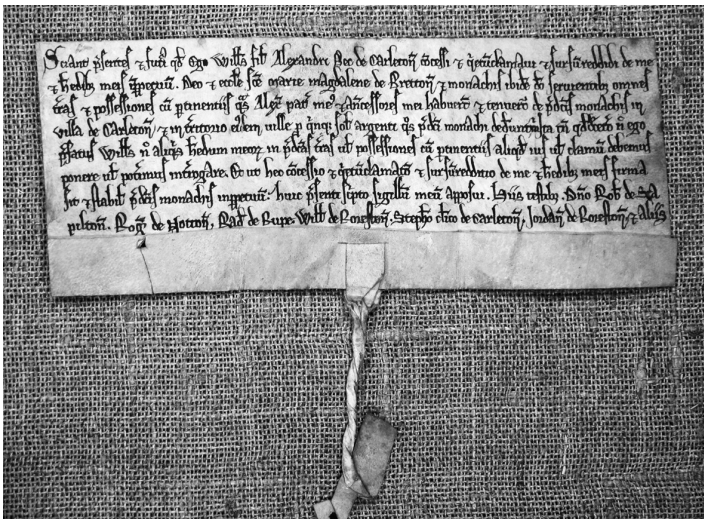 Sciant p̃sentes ⁊ fut̃i qd̃ Ego Witts fił Alexandri Cleci de Carleton̄ c̄cessi ⁊ q̃etũclamaui ⁊ sursũreddidi de me
⁊ h̃edibȝ meis īp̃petuū. Deo ⁊ ecctie sc̃e marie magdalene de Bretton̄ ⁊ monachis ibidē dõ seruientibȝ omnes
t̃ras ⁊ possessiones cū ptinentiis q̃s Alex̃ pat̃ me⁹ ⁊ añcessores mei habuer̃t ⁊ tenuer̃t de p̃dc̃is monachis in
villa de Carleton̄ ⁊ in t̃ritorio eiusdem uille p q̃nq̃ sot argenti q̃s p̃dc̃i monachi ded̃unt m̃ ita ꝙ ego
p̃fatus Witts ñ aliq̃s h̃edum meoꝝ in p̃dc̃as t̃ras ut possessiones cū ptinentiis aliqd̃ ius ut clamiū debemus
ponere ut potimus int̃rogare. Et ut hec c̄cessio ⁊ q̃etũclamatio ⁊ sursũreddit̃o de me ⁊ h̃edibȝ meis firma
sit ⁊ stabit p̃dc̃is monachis inppetuū: huic p̃senti sc̃pto sigiłłm meū apposui. Hiis testibȝ. Dño Rob̃ de Sa
pilton̄. Rog̃o de Notton̄. Rad̃ de Rupe. Witto de Roreston̄. Steph̃o ctico de Carleton̄. Jordañ de Roreston̄ ⁊ Aliis